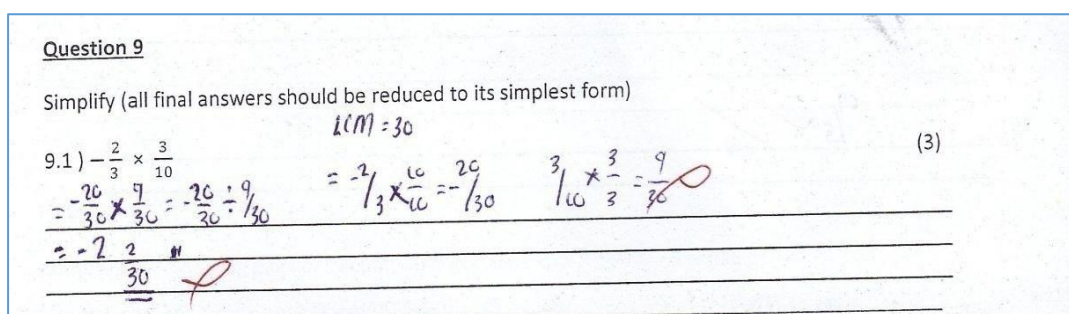 Question 9
Simplify (all final answers should be reduced to its simplest form)
LCM = 30
(3)
9.1 ) − 2/3 × 3/10
= -20/30 × 9/30 = -20/30 ÷ 9/30
= -2/3 × 10/10 = -20/30
3/10 × 3/3 = 9/30
= -2 2/30 "